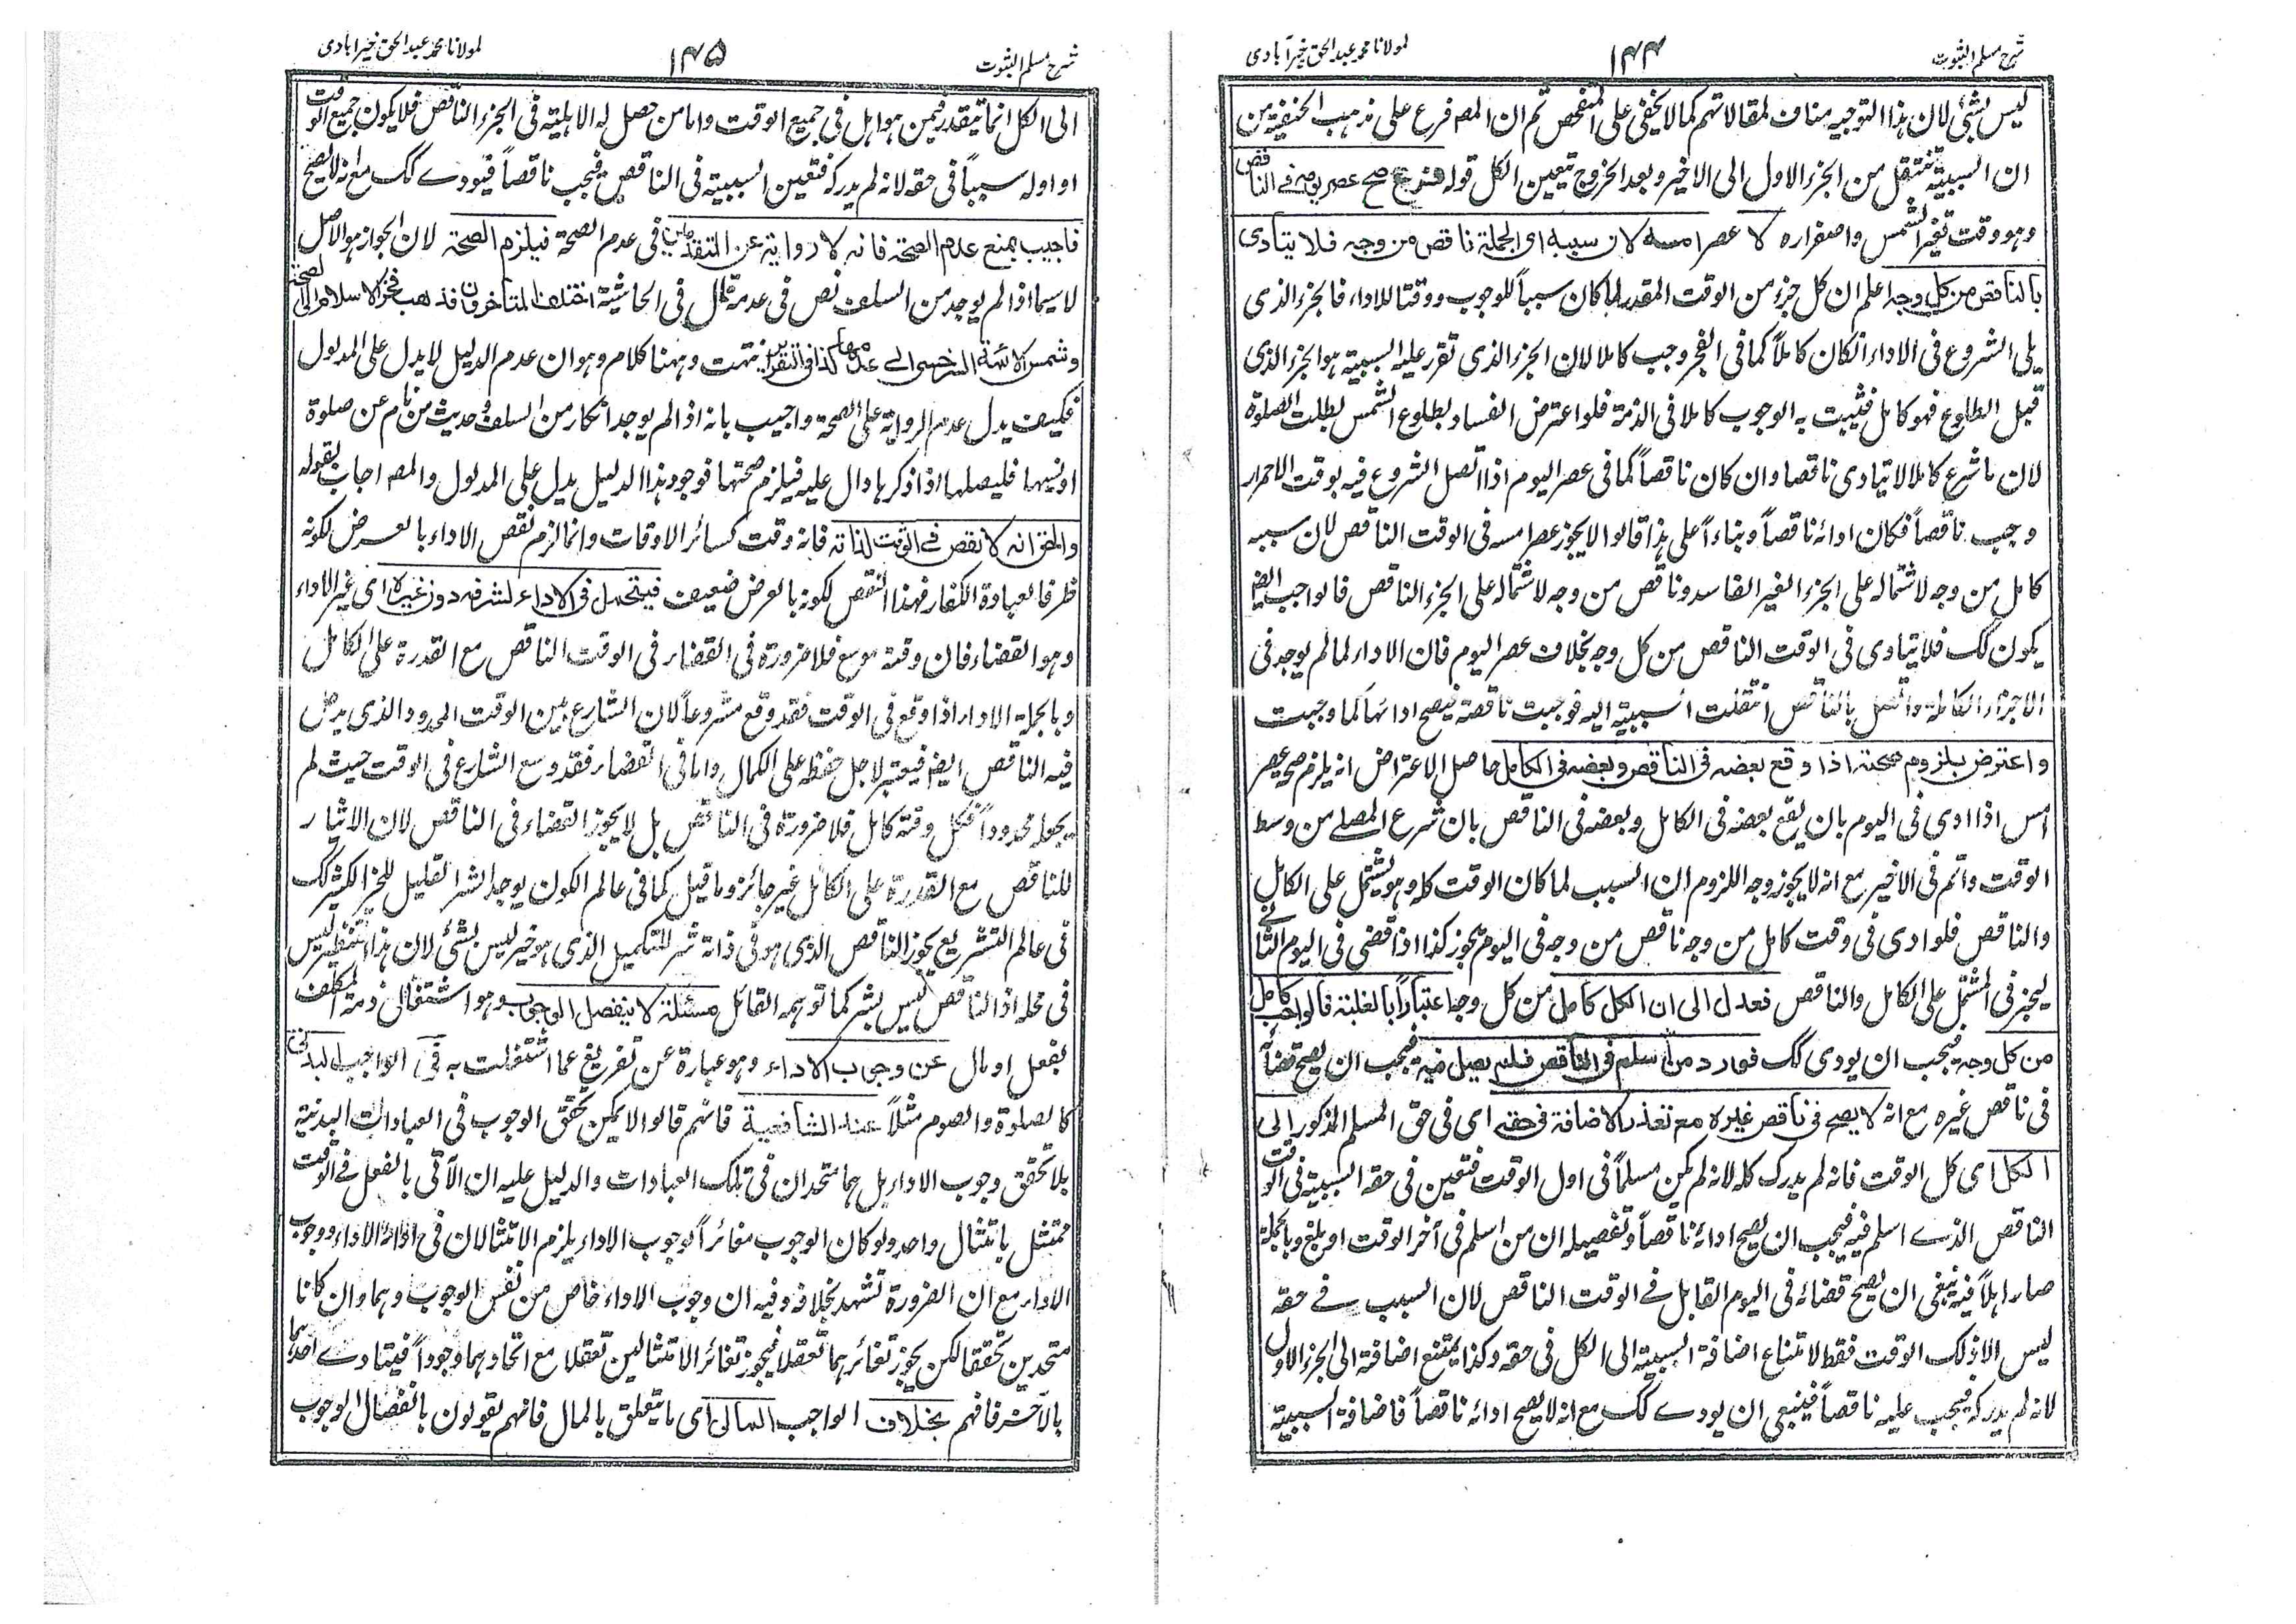 شرح مسلم الثبوت
۱۴۴
لمولانا محمد عبد الحق خیرآبادی
لیس بشئی لان ہذا التوجیہ مناف لمقالاتہم کما لا یخفی علی المتفحص ثم ان المصہ فرع علی مذہب الحنفیۃ من
ان السببیۃ تنتقل من الجزء الاول الی الاخیر و بعد الخروج یتعین الکل قولہ فرع صح عصر یومہ فے الناقص
وہو وقت تغیر الشمس واصفرارہ لا عصر امسہ لان سببہ ای الجملۃ ناقص من وجہ فلا یتادی
بالناقص من کل وجہ اعلم ان کل جزء من الوقت المقدر لما کان سبباً للوجوب ووقتا للاداء فالجزء الذی
یلی الشروع فی الاداء انکان کاملاً کما فی الفجر وجب کاملا لان الجزء الذی تقرر علیہ السببیۃ ہو الجزء الذی
قبیل الطلوع فہو کامل فثبت بہ الوجوب کاملا فی الذمۃ فلو اعترض الفساد بطلوع الشمس بطلت الصلوۃ
لان ما شرع کاملا لا یتادی ناقصا وان کان ناقصاً کما فی عصر الیوم اذا اتصل الشروع فیہ بوقت الاحمرار
وجب ناقصاً فکان ادائہ ناقصاً وبناءاً علی ہذا قالوا لا یجوز عصر امسہ فی الوقت الناقص لان سببہ
کامل من وجہ لاشتمالہ علی الجزء الغیر الفاسد وناقص من وجہ لاشتمالہ علی الجزء الناقص فالواجب ایضا
یکون کک فلا یتادی فی الوقت الناقص من کل وجہ بخلاف عصر الیوم فان الاداء لما لم یوجد فی
الاجزاء الکاملۃ واتصل بالناقص انتقلت السببیۃ الیہ فوجبت ناقصۃ فیصح ادائہا کما وجبت
واعترض بلزوم صحتہ اذا وقع بعضہ فی الناقص وبعضہ فی الکامل حاصل الاعتراض انہ یلزم صحۃ عصر
امس اذا ادی فی الیوم بان یقع بعضہ فی الکامل وبعضہ فی الناقص بان شرع المصلے من وسط
الوقت واتم فی الاخیر مع انہ لا یجوز وجہ اللزوم ان السبب لما کان الوقت کلہ وہو یشتمل علی الکامل
والناقص فلو ادی فی وقت کامل من وجہ ناقص من وجہ فی الیوم یجوز کذا اذا قضی فی الیوم الثانے
لیجز فی المشتمل علی الکامل والناقص فعدل الی ان الکل کامل من کل وجہ اعتباراً بالغلبۃ فالواجب کامل
من کل وجہ فیجب ان یودی کک فورد من اسلم فی الناقص فلم یصل فیہ فیجب ان یصح قضائہ
فی ناقص غیرہ مع انہ لا یصح فی ناقص غیرہ مع تعذر الاضافۃ فی حقہ ای فی حق المسلم المذکور الی
الکل ای کل الوقت فانہ لم یدرک کلہ لانہ لم یکن مسلماً فی اول الوقت فتعین فی حقہ السببیۃ فی الوقت
الناقص الذے اسلم فیہ فیجب ان یصح ادائہ ناقصاً وتفصیلہ ان من اسلم فی آخر الوقت او بلغ وبالجملۃ
صار اہلاً فیہ ینبغی ان یصح قضائہ فی الیوم القابل فے الوقت الناقص لان السبب فے حقہ
لیس الا ذلک الوقت فقط لامتناع اضافۃ السببیۃ الی الکل فی حقہ وکذا یمتنع اضافۃ الی الجزء الاول
لانہ لم یدرکہ فیجب علیہ ناقصاً فینبغی ان یودے کک مع انہ لا یصح ادائہ ناقصاً فاضافۃ السببیۃ
شرح مسلم الثبوت
۱۴۵
لمولانا محمد عبد الحق خیرابادی
الی الکل انما یتقدر فیمن ہو اہل فی جمیع الوقت واما من حصل لہ الاہلیۃ فی الجزء الناقص فلا یکون جمیع الوقت
او اولہ سبباً فی حقہ لانہ لم یدرکہ فتعین السببیۃ فی الناقص فیجب ناقصاً فیودے کک مع انہ لا یصح
فاجیب بمنع عدم الصحۃ فانہ لا روایۃ عن المتقدمین فی عدم الصحۃ فیلزم الصحۃ لان الجواز ہو الاصل
لا سیما اذا لم یوجد من السلف نص فی عدمہ قال فی الحاشیۃ اختلف المتاخرون فذهب فخر الاسلام الی الصحۃ
وشمس الائمۃ السرخسی الے عدمہا کذا فی التقریر انتہت وہہنا کلام وہو ان عدم الدلیل لا یدل علی المدلول
فکیف یدل عدم الروایۃ علی الصحۃ واجیب بانہ اذا لم یوجد انکار من السلف وحدیث من نام عن صلوۃ
او نسیہا فلیصلہا اذا ذکرہا دال علیہ فیلزم صحتہا فوجود ہذا الدلیل یدل علی المدلول والمصہ اجاب بقولہ
والحق انہ لا نقص فے الوقت لذاتہ فانہ وقت کسائر الاوقات وانما لزم نقص الاداء بالعرض لکونہ
ظرفا لعبادۃ الکفار فہذا النقص لکونہ بالعرض ضعیف فیتحمل فی الاداء لشرفہ دون غیرہ ای غیر الاداء
وہو القضاء فان وقتہ موسع فلا ضرورۃ فی القضاء فی الوقت الناقص مع القدرۃ علی الکامل
وبالجملۃ الاداء اذا وقع فی الوقت فقد وقع مشروعاً لان الشارع بین الوقت المحدود الذی یدخل
فیہ الناقص ایضا فیعتبر لاجل حفظہ علی الکمال واما فی القضاء فقد وسع الشارع فی الوقت حیث لم
یجعلہ محدوداً فکل وقتہ کامل فلا ضرورۃ فی الناقص بل لا یجوز القضاء فی الناقص لان الایثار
للناقص مع القدرۃ علی الکامل غیر جائز وما قیل کما فی عالم الکون یوجد الشر القلیل للخیر الکثیر کک
فی عالم التشریع یجوز الناقص الذی ہو فی ذاتہ شر للتکمیل الذی ہو خیر لیس بشئی لان ہذا التنظیر لیس
فی محلہ اذ الناقص لیس بشر کما توہمہ القائل مسئلۃ لا ینفصل الوجوب وہو اشتغال ذمۃ المکلف
بفعل او مال عن وجوب الاداء وہو عبارۃ عن تفریغ عما اشتغلت بہ فی الواجب البدنی
کالصلوۃ والصوم مثلاً عند الشافعیۃ فانہم قالوا لا یمکن تحقق الوجوب فی العبادات البدنیۃ
بلا تحقق وجوب الاداء بل ہما متحدان فی تلک العبادات والدلیل علیہ ان الآتی بالفعل فے الوقت
ممتثل بامتثال واحد ولو کان الوجوب مغائراً لوجوب الاداء یلزم الامتثالان فی اداء الاداء ووجوب
الاداء مع ان الضرورۃ تشہد بخلافہ وفیہ ان وجوب الاداء خاص من نفس الوجوب وہما وان کانا
متحدین تحققا لکن یجوز تغائرہما تعقلا فیجوز تغائر الامتثالین تعقلا مع اتحادہما وجوداً فیتادے احدہما
بالآخر فافہم بخلاف الواجب المالی ای ما یتعلق بالمال فانہم یقولون بانفصال الوجوب